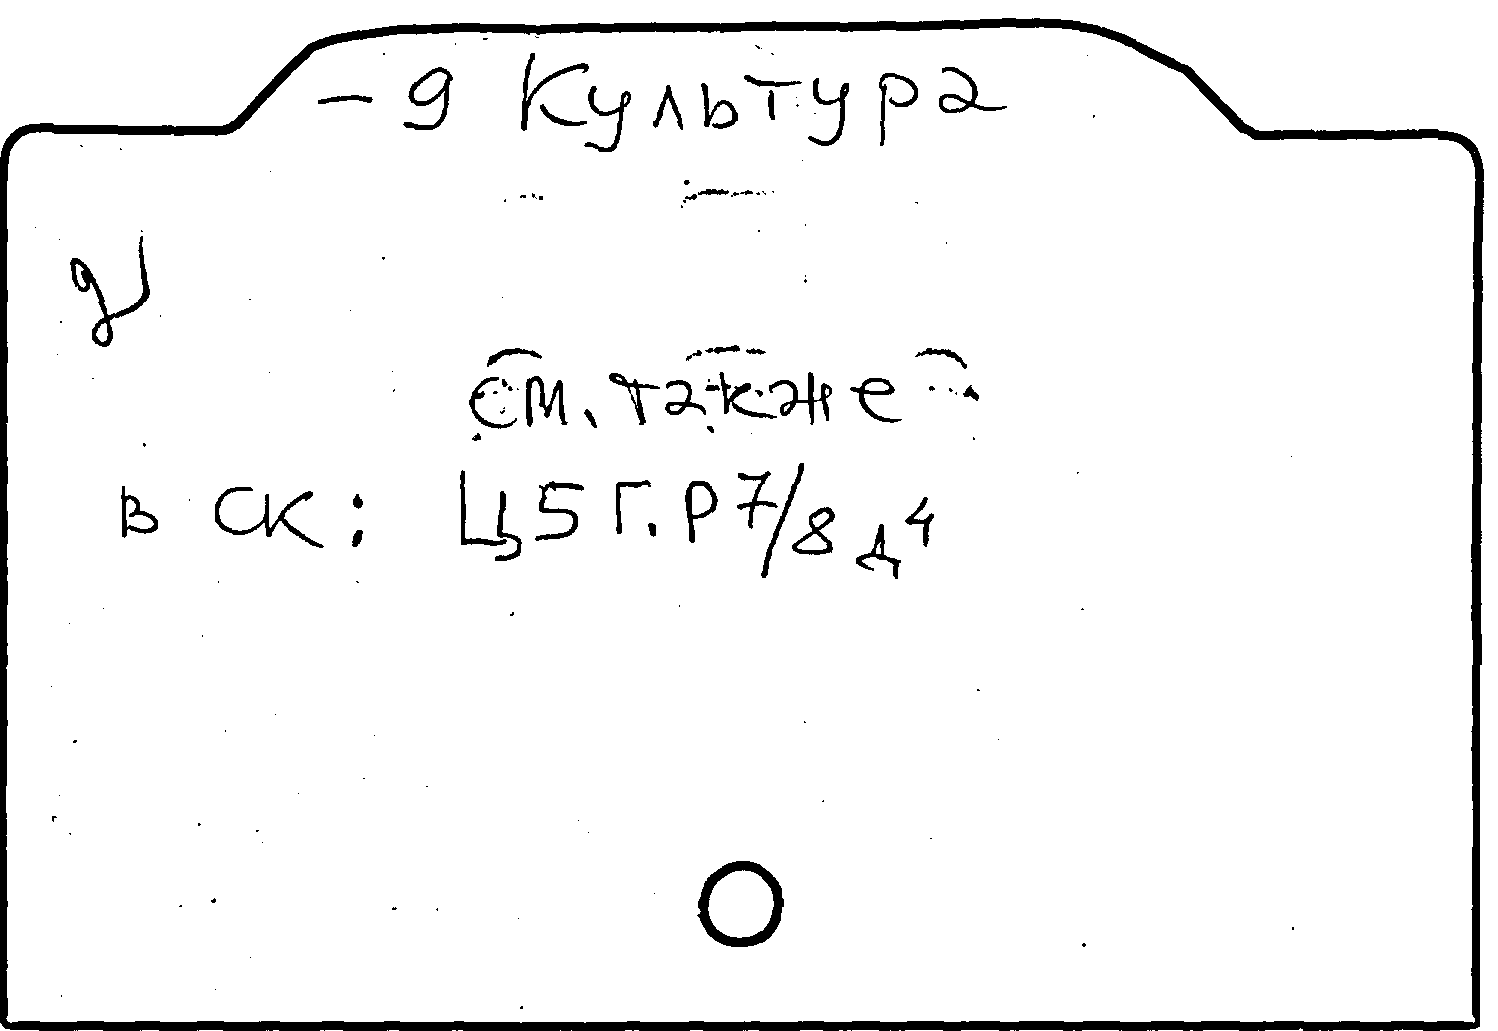 – 9 Культура
см. также
в СК: Ц5 Г.Р7/8 д4